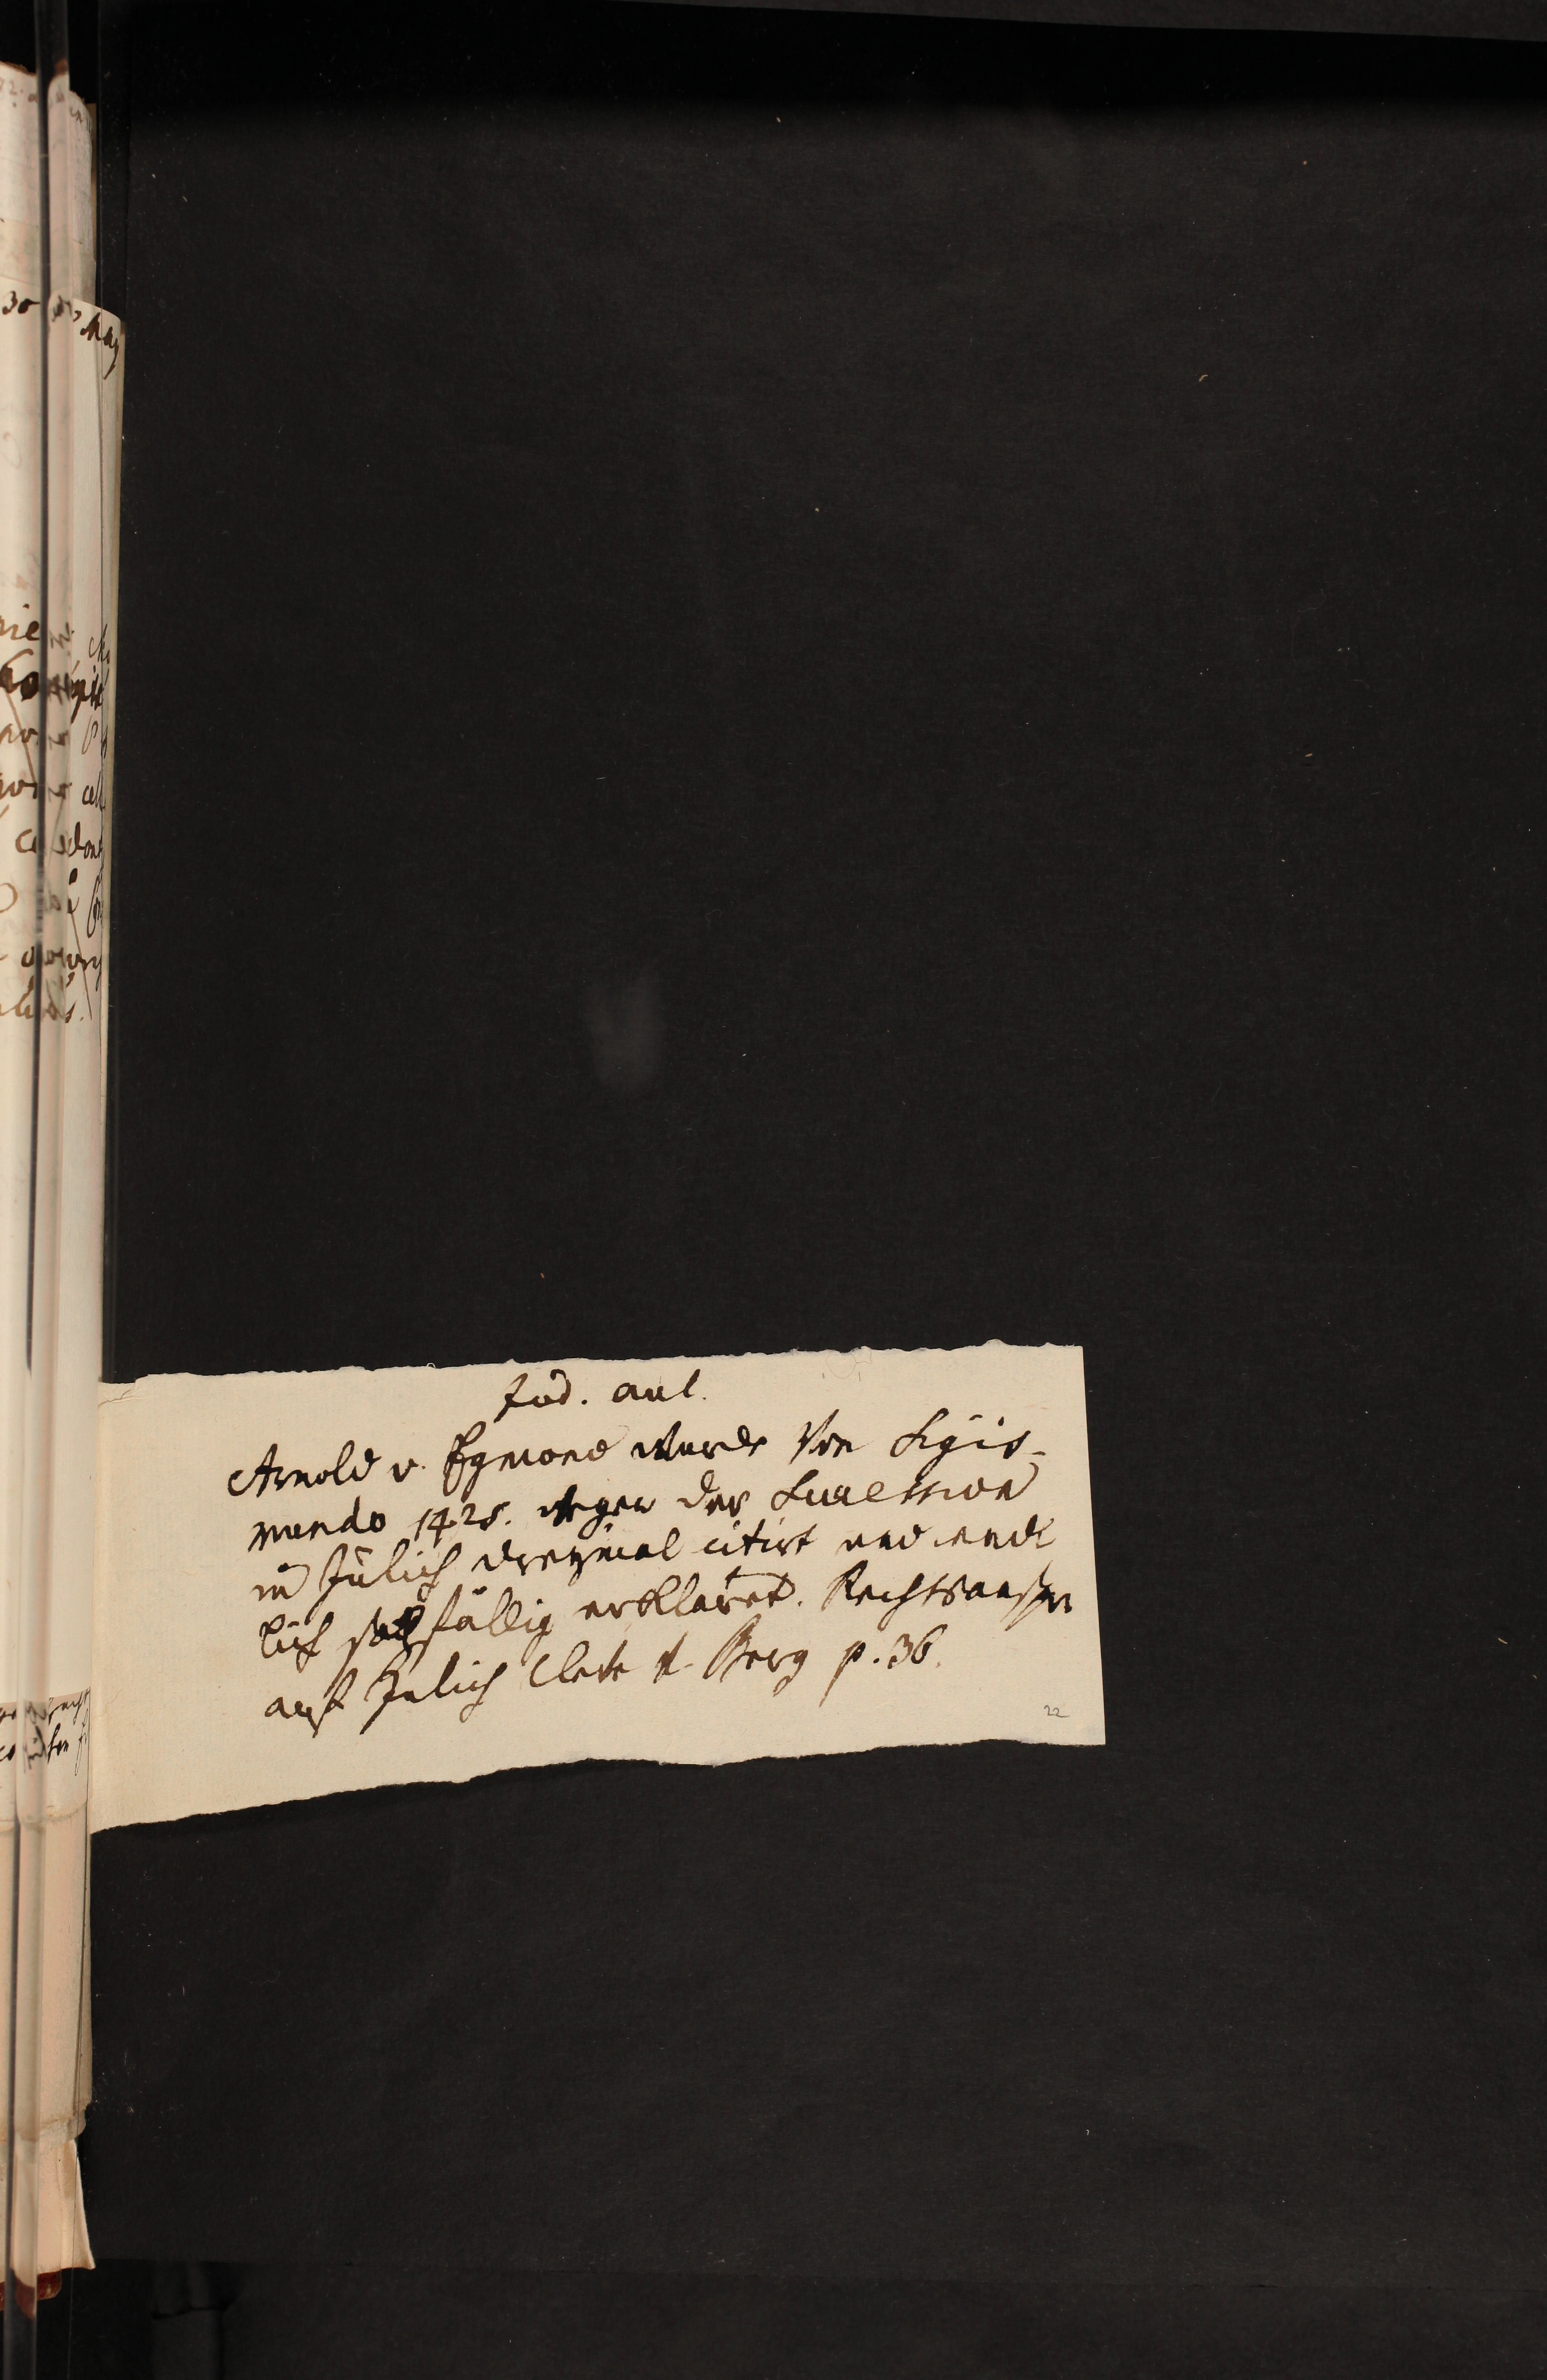 Jud. aul.
Arnold v. Egmond wurde von Sigis-
mundo 1425. wegen der Succession
in Jülich dreymal citirt und end
lich sachfällig erkläret. Rechtsansp
auf Jülich Cleve u. Berg p. 36.
22